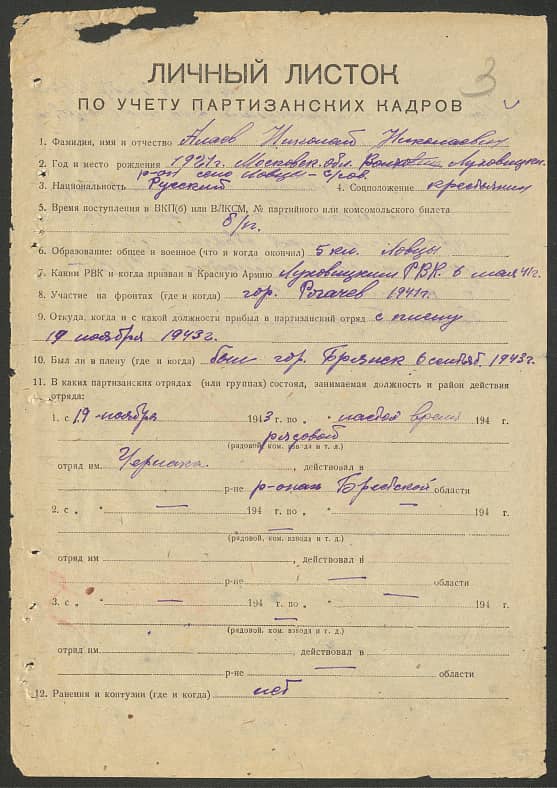 3
ЛИЧНЫЙ ЛИСТОК
ПО УЧЕТУ ПАРТИЗАНСКИХ КАДРОВ
1. Фамилия, имя и отчество Алаев Николай Николаевич
2. Год и место рождения 1921г. Московск. обл. Луховицк.
р-он село Ловцы
3. Национальность Русский 4. Соцположение крестьянин
5. Время поступления в ВКП(б) или ВЛКСМ, № партийного или комсомольского билета
б/п.
6. Образование: общее и военное (что и когда окончил) 5 кл. Ловцы
7. Каким РВК и когда призван в Красную Армию Луховицким РВК. 6 мая 41г.
8. Участие на фронтах (где и когда) гор. Рогачев 1941г.
9. Откуда, когда и с какой должности прибыл в партизанский отряд с плену
19 ноября 1943г.
10. Был ли в плену (где и когда) был гор. Брянск 6 сентяб. 1943г.
11. В каких партизанских отрядах (или группах) состоял, занимаемая должность и район действия
отряда:
1. с 19 ноября 1943 г. по " настоя время 194 г.
рядовой
(рядовой, ком. взвода и т. д.)
отряд им. Чернака. , действовал в
р-не р-онах Брестской области
2. с " — 194 г. по " — 194 г.
—
(рядовой, ком. взвода и т. д.)
отряд им , действовал в
р-не — области
3. с " — 194 г. по " — 194 г.
—
(рядовой, ком. взвода и т. д.)
отряд им. , действовал в
р-не — области
12. Ранения и контузии (где и когда) нет